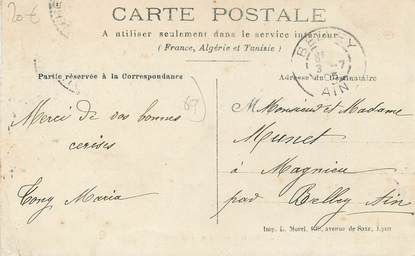 20 €
CARTE POSTALE
A utiliser seulement dans le service intérieur
(France, Algérie et Tunisie)
BELLEY
3 -7
AIN
Partie réservée à la Correspondance
Adresse du Destinataire
Merci de vos bonnes
cerises
Tony Maria
Monsieur et Madame
Munet
à Magnieu
par Belley Ain
Imp. L. Morel, avenue de Saxe, Lyon